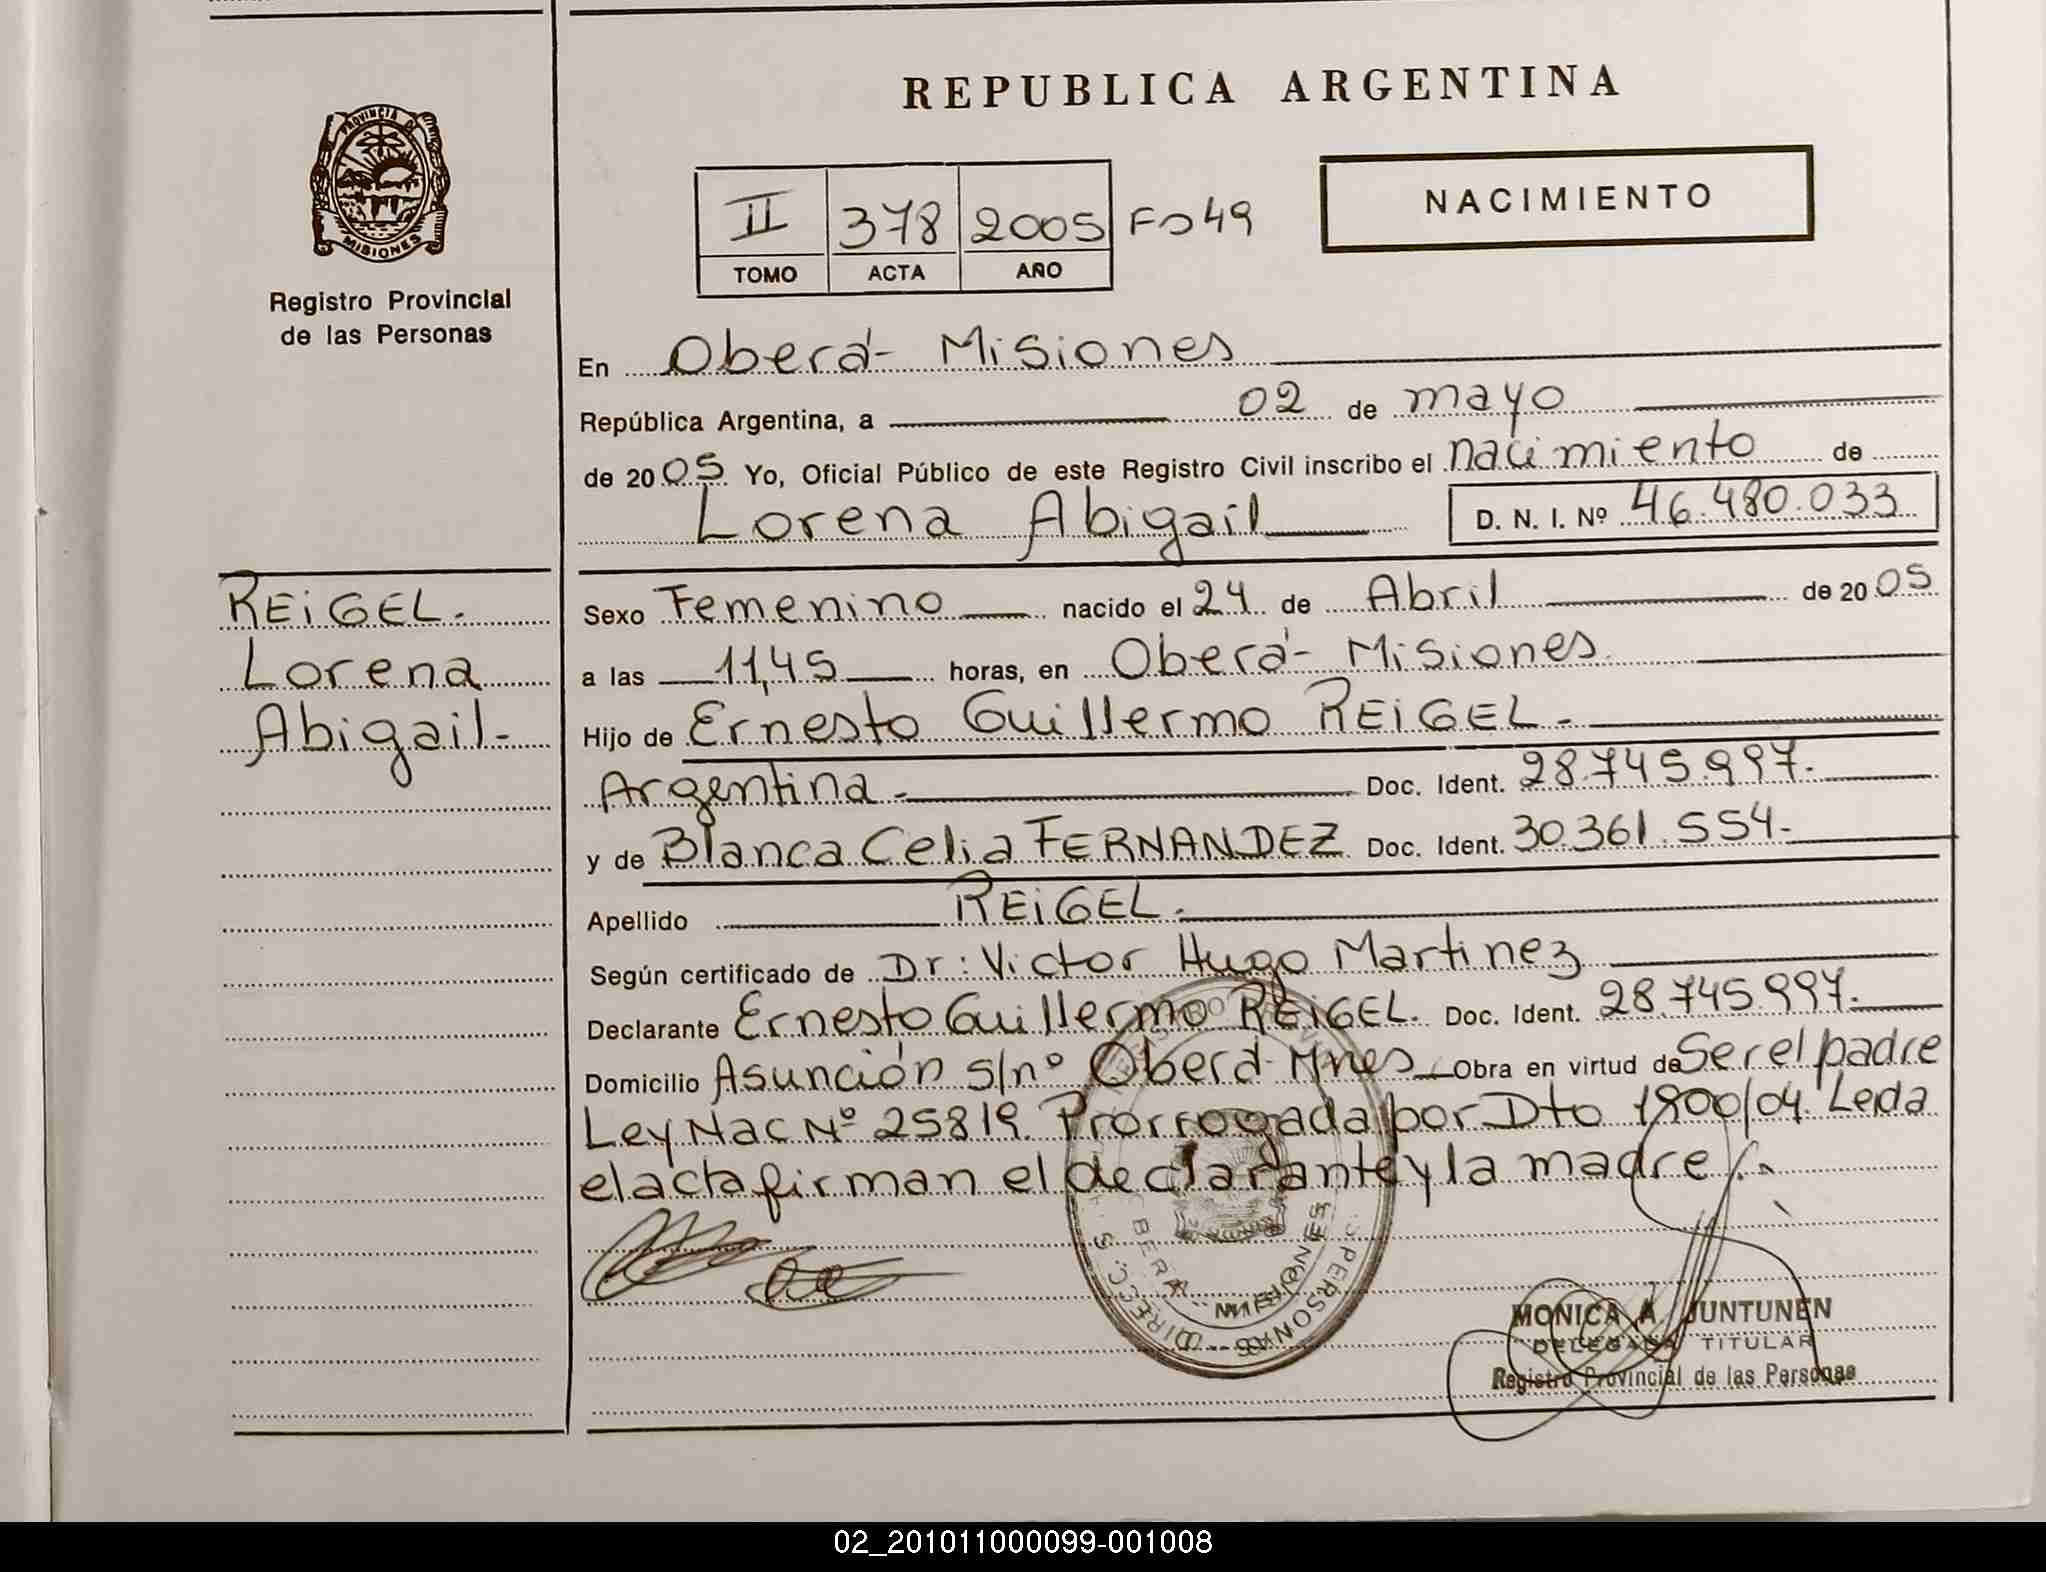 REPUBLICA ARGENTINA
PROVINCIA DE
MISIONES
Registro Provincial
de las Personas
II 378 2005 Fº 49
TOMO ACTA AÑO
NACIMIENTO
En Oberá - Misiones
República Argentina, a 02 de mayo
de 2005 Yo, Oficial Público de este Registro Civil inscribo el nacimiento de
Lorena Abigail D. N. I. Nº 46.480.033
REIGEL.
Lorena
Abigail-
Sexo Femenino nacido el 24 de Abril de 2005
a las 11,45 horas, en Oberá - Misiones
Hijo de Ernesto Guillermo REIGEL -
Argentina - Doc. Ident. 28.745.997.
y de Blanca Celia FERNANDEZ Doc. Ident. 30.361.554-
Apellido REIGEL.
Según certificado de Dr: Victor Hugo Martinez
Declarante Ernesto Guillermo REIGEL. Doc. Ident. 28.745.997.
Domicilio Asunción s/nº Oberá - Mnes Obra en virtud de Ser el padre
Ley Nac Nº 25819. Prorrogada por Dto 1900/04. Leida
el acta firman el declarante y la madre
MONICA A. JUNTUNEN
DELEGADA TITULAR
Registro Provincial de las Personas
02_201011000099-001008